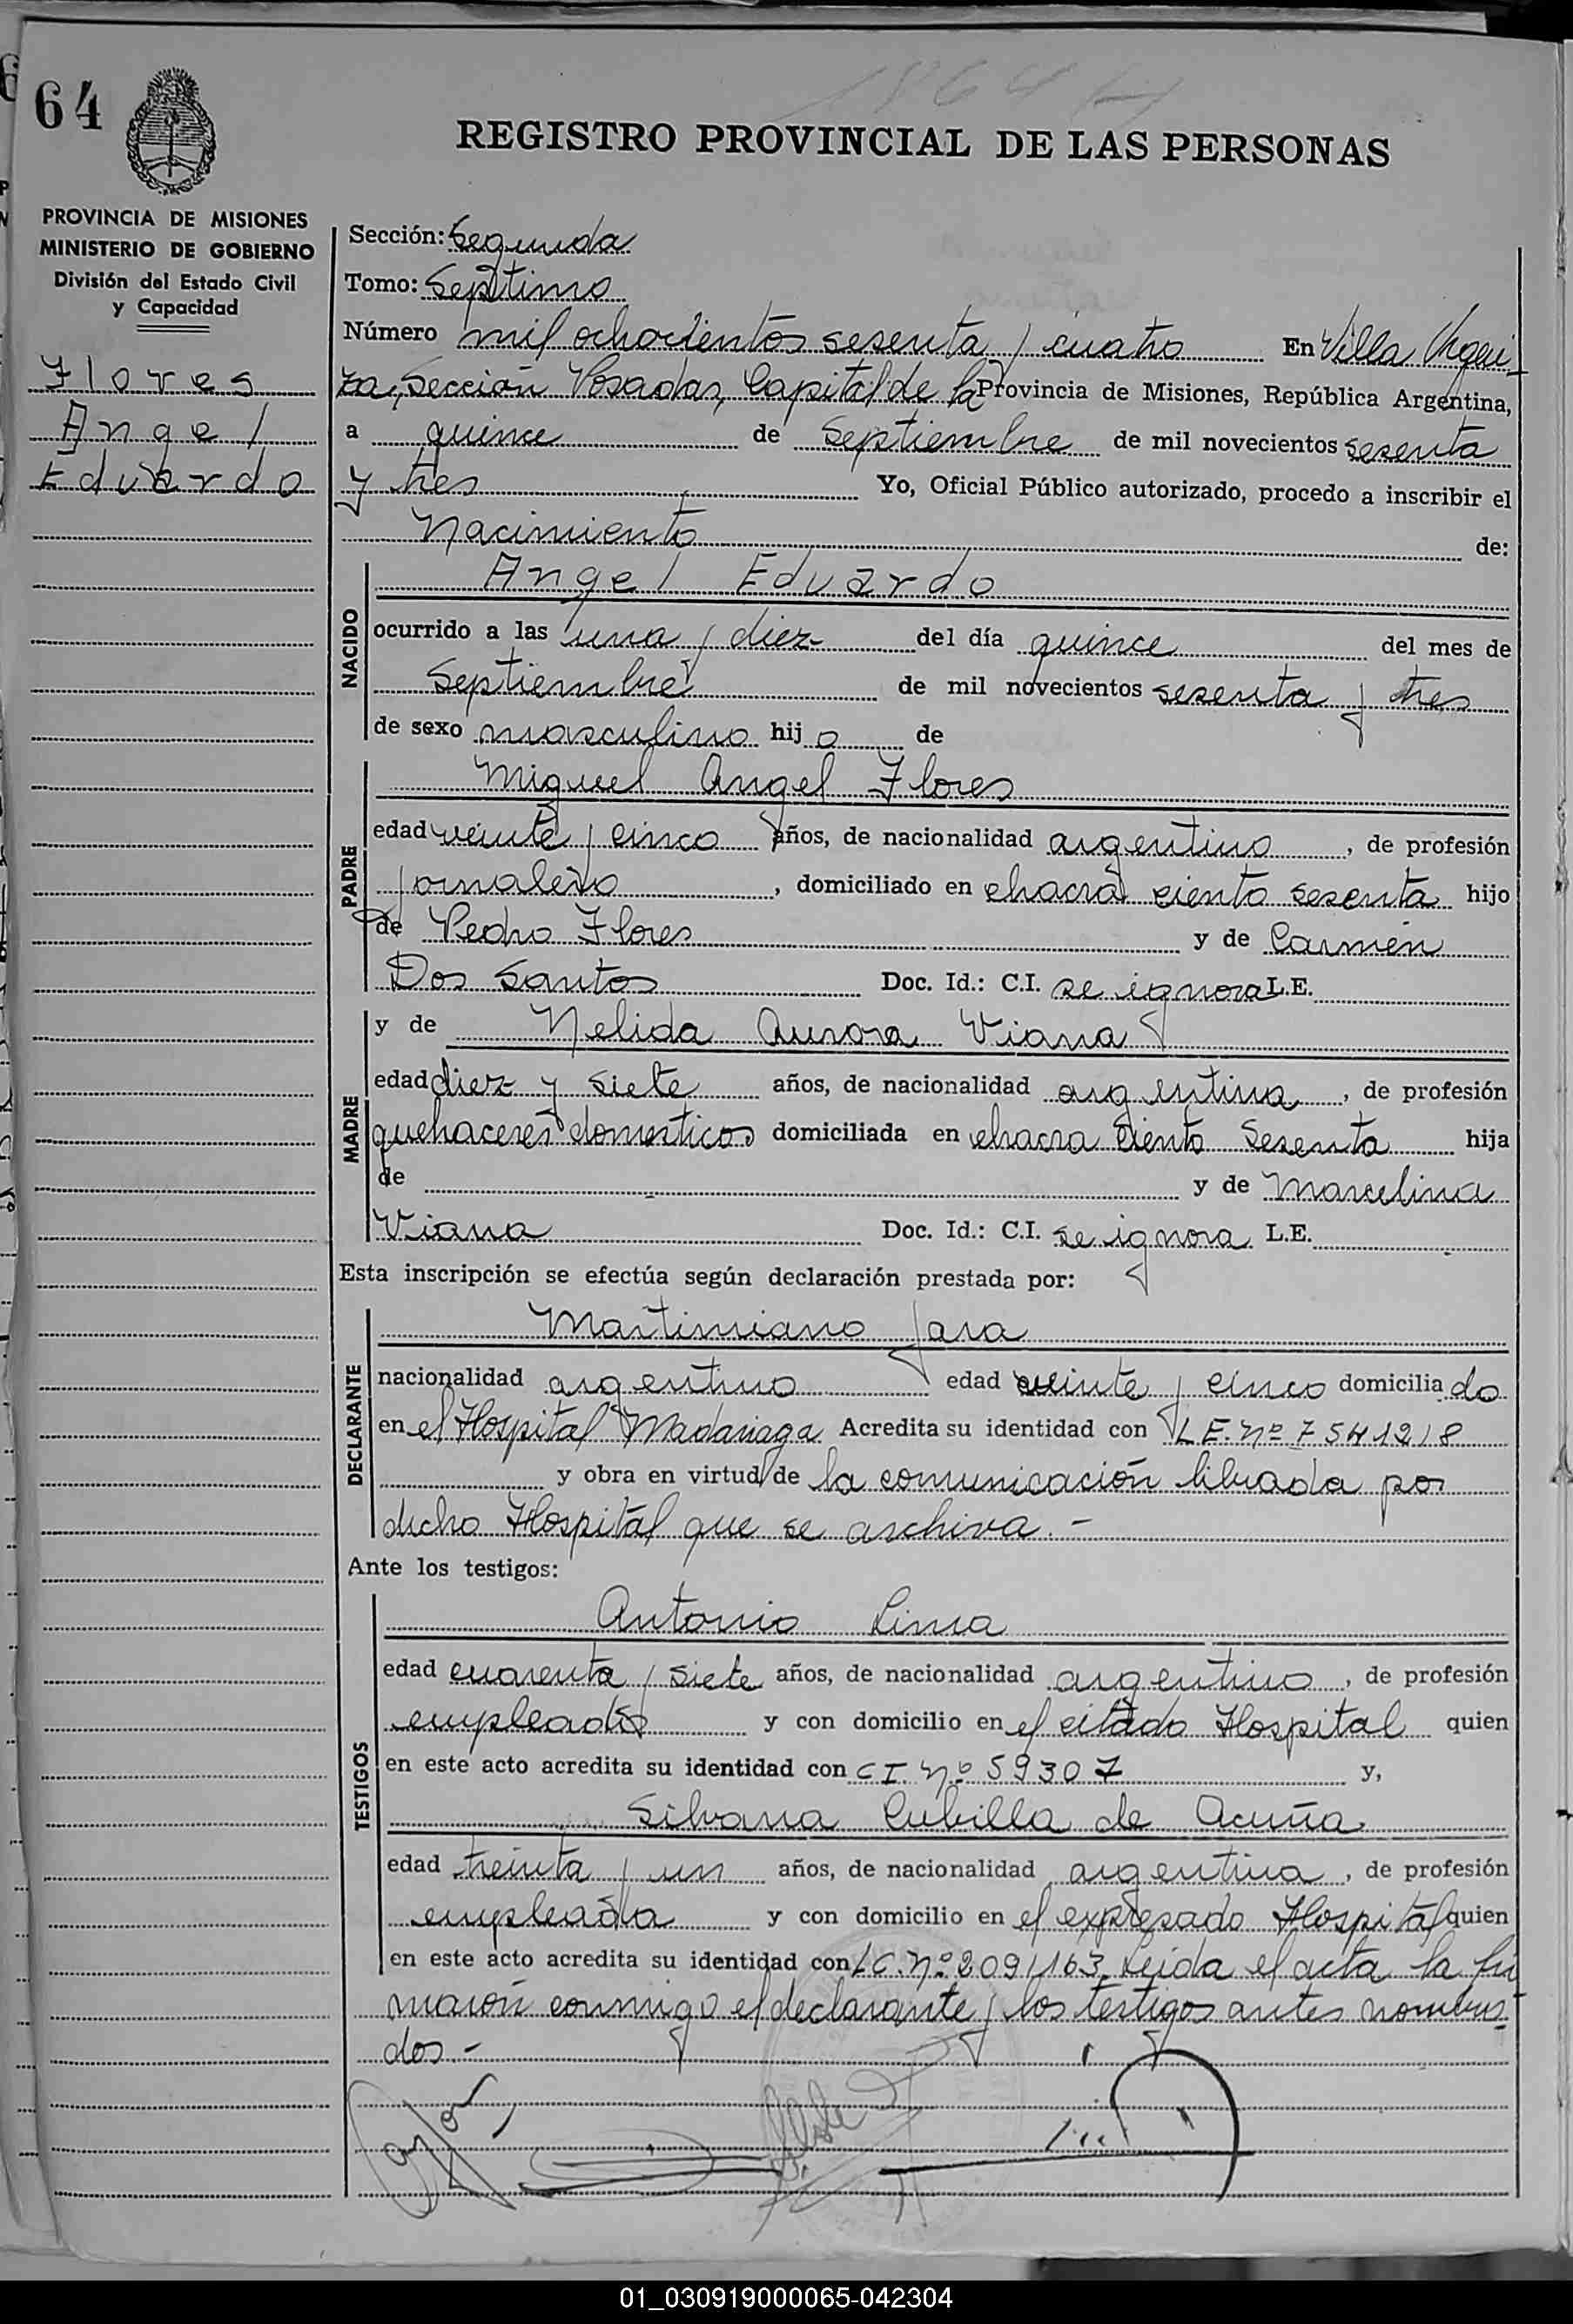 64
1864
REGISTRO PROVINCIAL DE LAS PERSONAS
PROVINCIA DE MISIONES
MINISTERIO DE GOBIERNO
División del Estado Civil
y Capacidad
Flores
Angel
Eduardo
Sección: Segunda
Tomo: Septimo
Número mil ochocientos sesenta y cuatro En Villa Urqui-
za, Sección Posadas, Capital de la Provincia de Misiones, República Argentina,
a quince de Septiembre de mil novecientos sesenta
y tres Yo, Oficial Público autorizado, procedo a inscribir el
Nacimiento de:
NACIDO
Angel Eduardo
ocurrido a las una y diez del día quince del mes de
Septiembre de mil novecientos sesenta y tres
de sexo masculino hijo de
PADRE
Miguel Angel Flores
edad veinte y cinco años, de nacionalidad argentino, de profesión
jornalero, domiciliado en chacra ciento sesenta hijo
de Pedro Flores y de Carmen
Dos Santos Doc. Id.: C.I. se ignora L.E.
MADRE
y de Nelida Aurora Viana
edad diez y siete años, de nacionalidad argentina, de profesión
quehaceres domesticos domiciliada en chacra ciento sesenta hija
de y de Marcelina
Viana Doc. Id.: C.I. se ignora L.E.
Esta inscripción se efectúa según declaración prestada por:
DECLARANTE
Martimiano Jara
nacionalidad argentino edad veinte y cinco domiciliado
en el Hospital Madariaga Acredita su identidad con L.E. Nº 7541218
y obra en virtud de la comunicación librada por
dicho Hospital que se archiva.-
Ante los testigos:
TESTIGOS
Antonio Lima
edad cuarenta y siete años, de nacionalidad argentino, de profesión
empleado y con domicilio en el citado Hospital quien
en este acto acredita su identidad con C.I. Nº 59307 y,
Silvana Cubilla de Acuña
edad treinta y un años, de nacionalidad argentina, de profesión
empleada y con domicilio en el expresado Hospital quien
en este acto acredita su identidad con L.C. Nº 2091163. Leida el acta la fir
maron conmigo el declarante y los testigos antes nombra-
dos.-
01_030919000065-042304